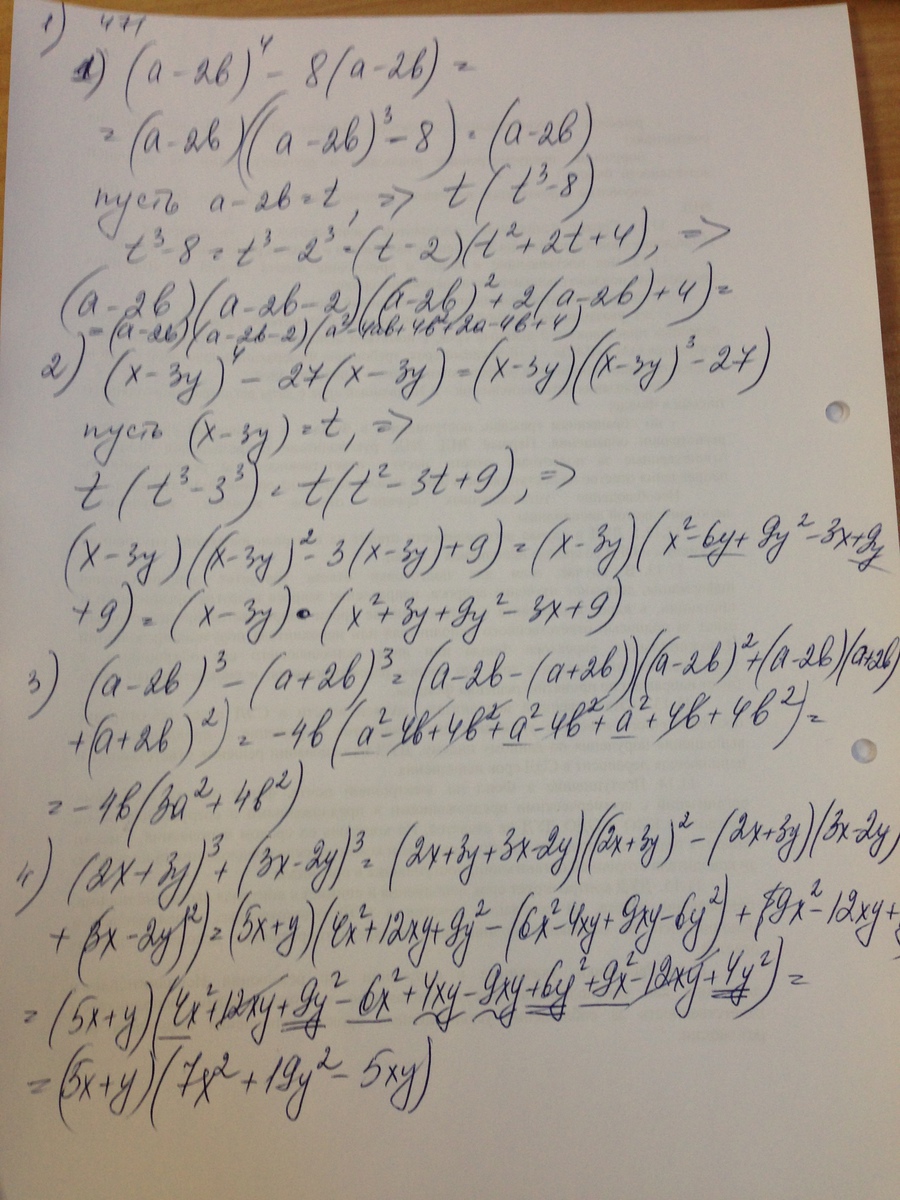 1) 471
1) (a-2b)⁴ - 8(a-2b) =
= (a-2b)((a-2b)³-8) = (a-2b)
пусть a-2b=t, => t(t³-8)
t³-8 = t³-2³ = (t-2)(t²+2t+4), =>
(a-2b)(a-2b-2)((a-2b)²+2(a-2b)+4) =
= (a-2b)(a-2b-2)(a²-4ab+4b²+2a-4b+4)
2) (x-3y)⁴ - 27(x-3y) = (x-3y)((x-3y)³-27)
пусть (x-3y) = t, =>
t(t³-3³) = t(t²-3t+9), =>
(x-3y)((x-3y)²-3(x-3y)+9) = (x-3y)(x²-6y+9y²-3x+9y
+9) = (x-3y)•(x²+3y+9y²-3x+9)
3) (a-2b)³-(a+2b)³ = (a-2b-(a+2b))((a-2b)²+(a-2b)(a+2b)
+(a+2b)²) = -4b(a²-4b+4b²+a²-4b²+a²+4b+4b²) =
= -4b(3a²+4b²)
4) (2x+3y)³+(3x-2y)³ = (2x+3y+3x-2y)((2x+3y)²-(2x+3y)(3x-2y)
+(3x-2y)²) = (5x+y)(4x²+12xy+9y²-(6x²-4xy+9xy-6y²)+(9x²-12xy+
= (5x+y)(4x²+12xy+9y²-6x²+4xy-9xy+6y²+9x²-12xy+4y²) =
= (5x+y)(7x²+19y²-5xy)